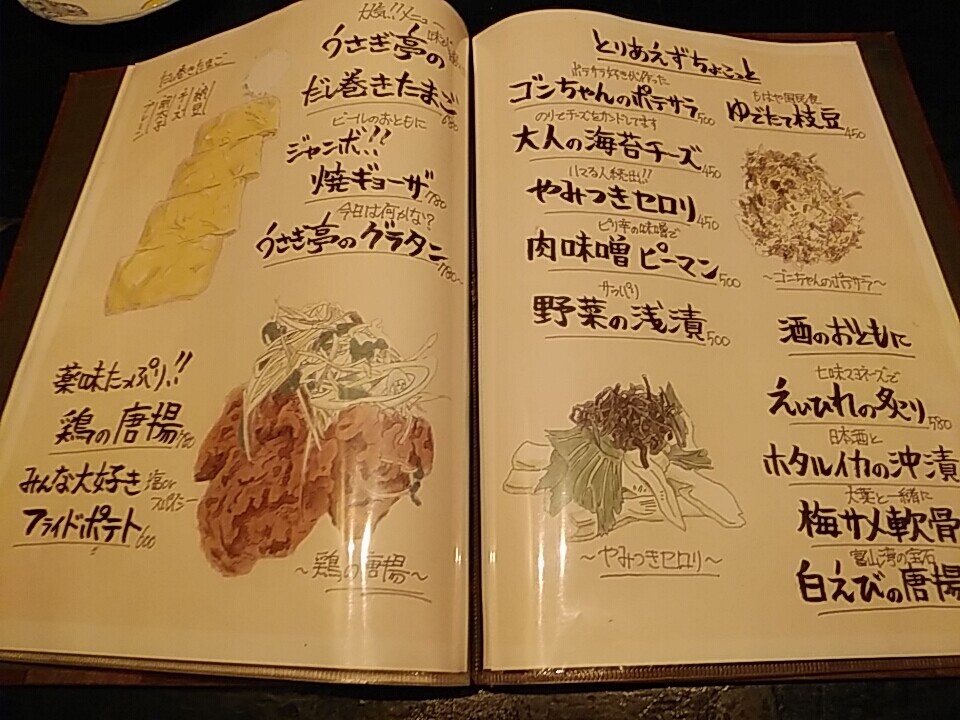 だし巻きたまご
納豆
チーズ
明太子
プレーン
人気!!メニュー
うさぎ亭の
だし巻きたまご 680
ビールのおともに
ジャンボ!!
焼ギョーザ 780
今日は何かな?
うさぎ亭のグラタン 780~
薬味たっぷり!!
鶏の唐揚 780
みんな大好き
フライドポテト 600
~鶏の唐揚~
とりあえずちょこっと
ポテサラ好きが作った
ゴンちゃんのポテサラ 500
のりでチーズをサンドしてます
大人の海苔チーズ 450
ハマる人続出!!
やみつきセロリ 450
ピリ辛の味噌で
肉味噌ピーマン 500
サッパリ
野菜の浅漬 500
~やみつきセロリ~
もはや国民食
ゆでたて枝豆 450
~ゴンちゃんのポテサラ~
酒のおともに
七味マヨネーズで
えいひれの炙り 580
日本酒と
ホタルイカの沖漬
大葉と一緒に
梅サメ軟骨
富山湾の宝石
白えびの唐揚